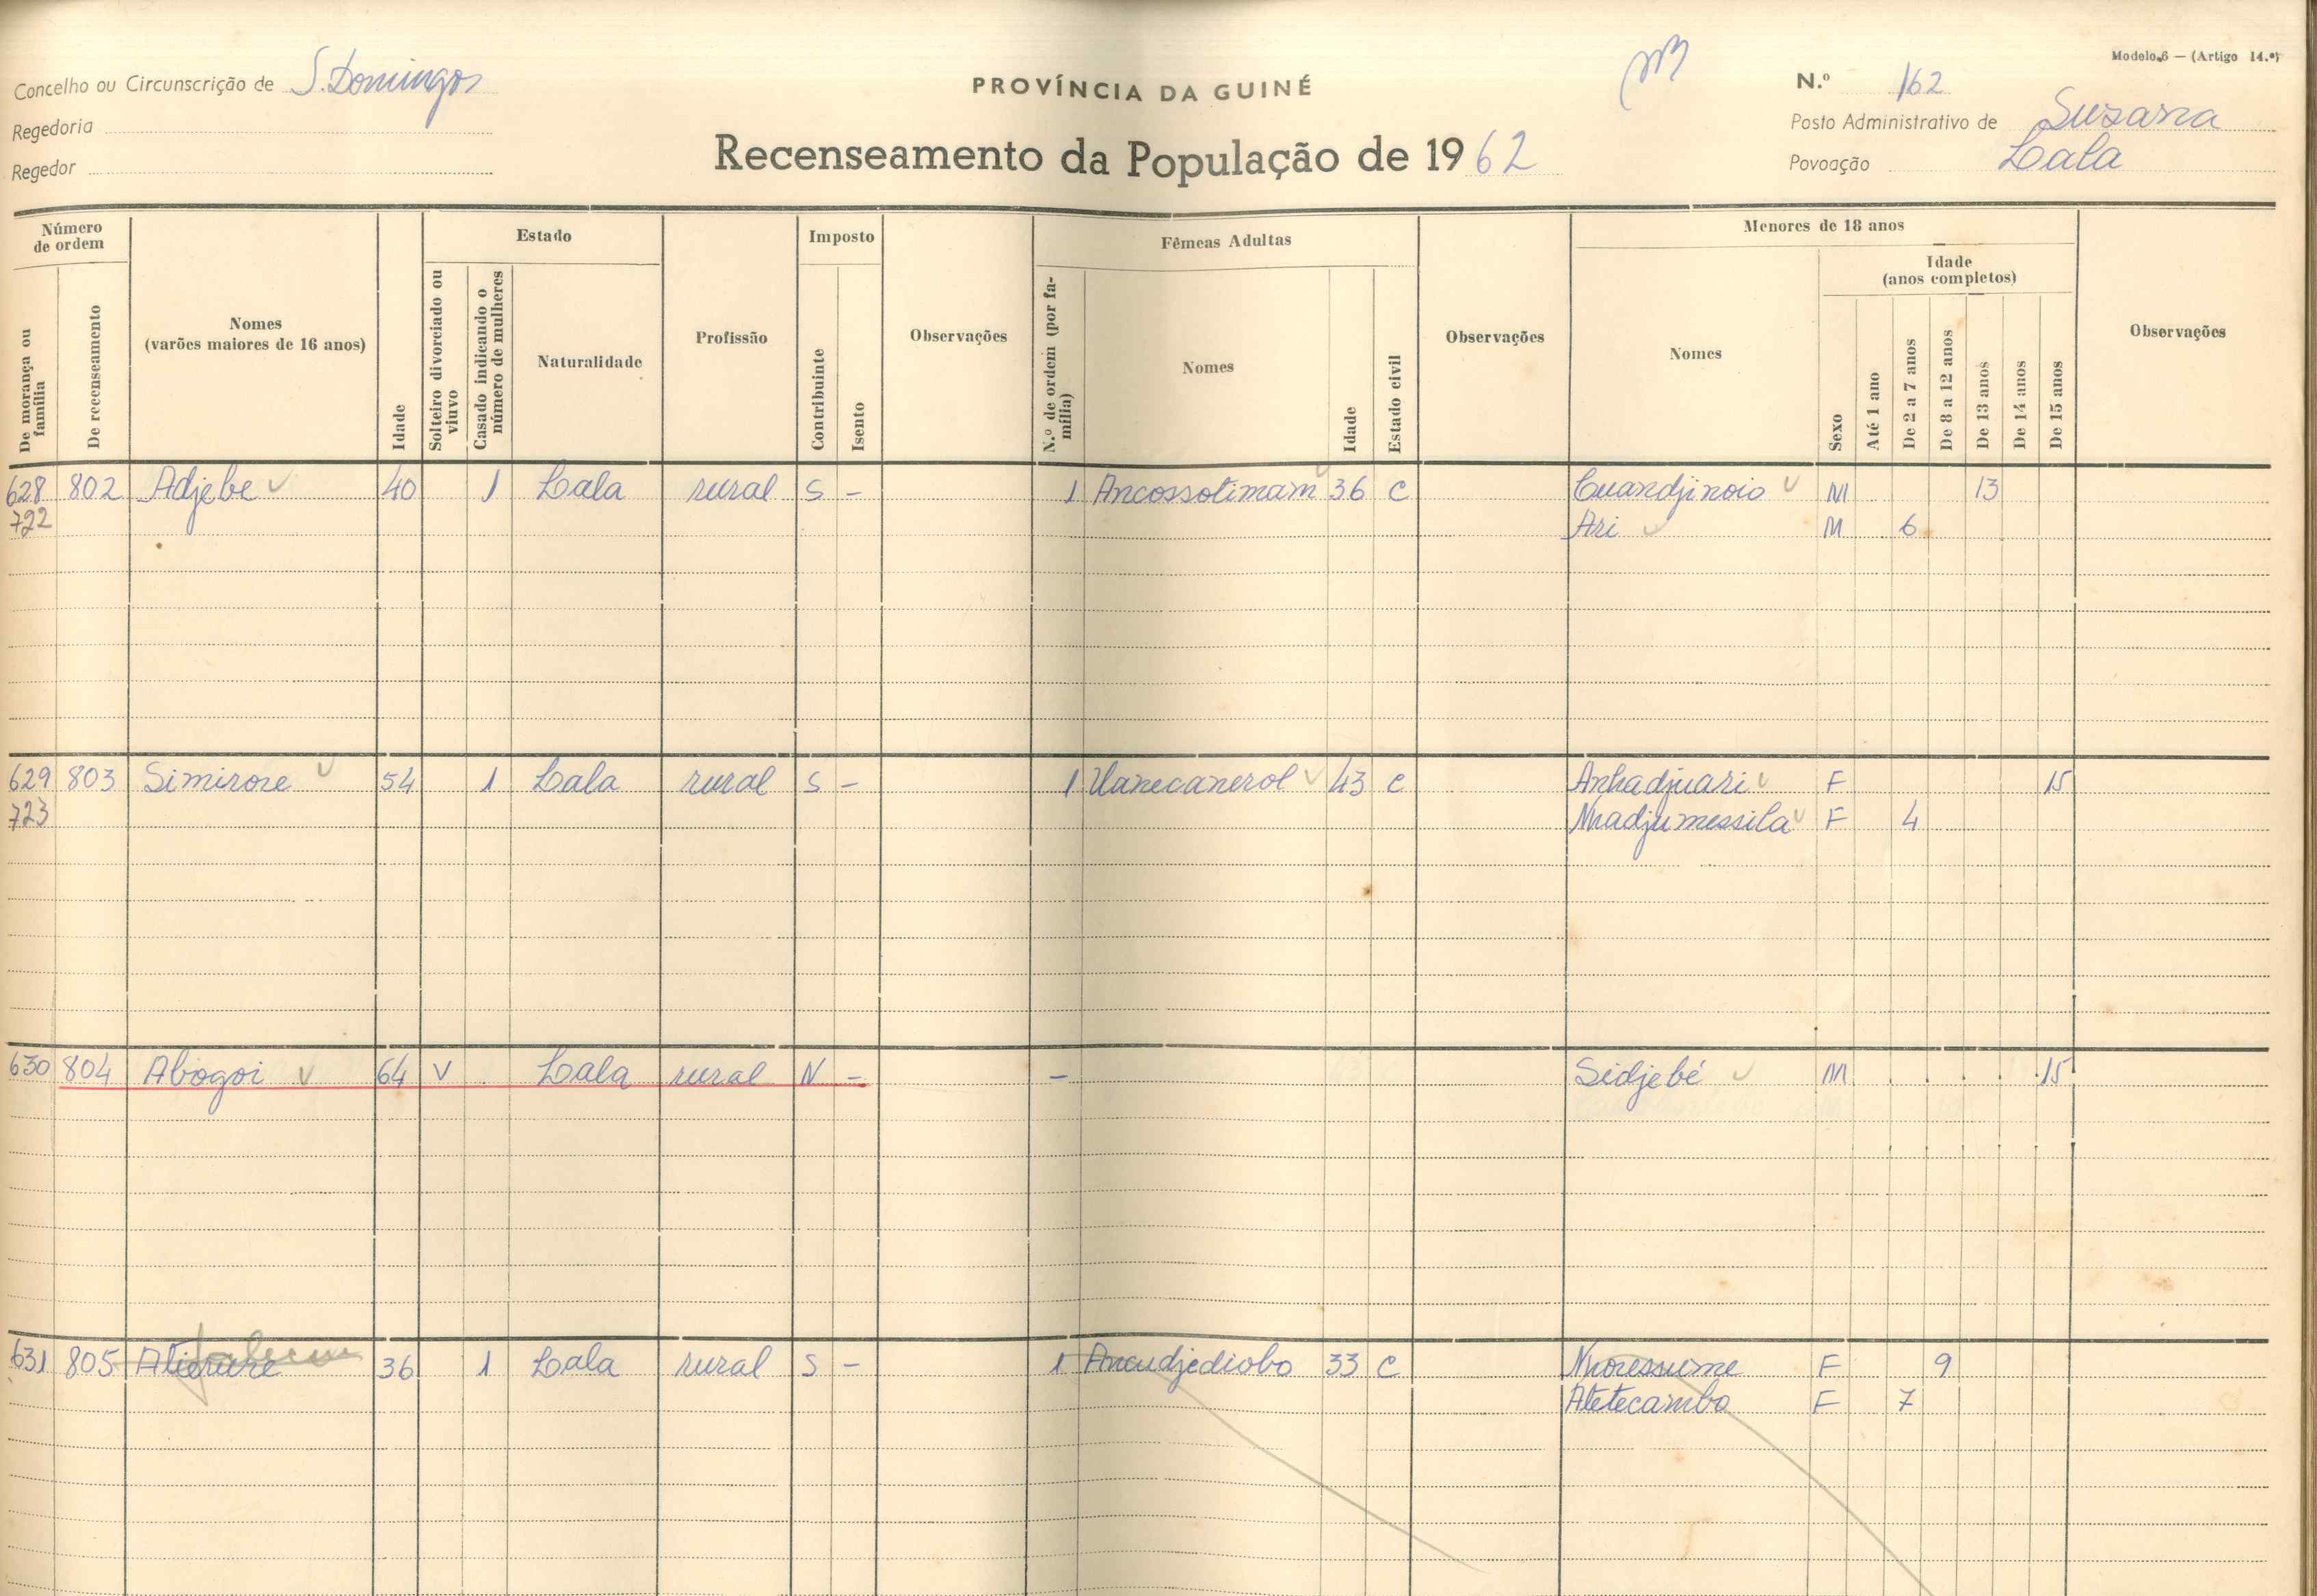 Modelo 6 — (Artigo 14.º)
Concelho ou Circunscrição de S. Domingos
PROVÍNCIA DA GUINÉ
N.º 162
Regedoria
Posto Administrativo de Suzana
Regedor
Recenseamento da População de 1962
Povoação Lala
Número de ordem
Estado
Imposto
Fêmeas Adultas
Menores de 18 anos
Idade (anos completos)
De morança ou família
De recenseamento
Nomes (varões maiores de 16 anos)
Idade
Solteiro divorciado ou viuvo
Casado indicando o número de mulheres
Naturalidade
Profissão
Contribuinte
Isento
Observações
N.º de ordem (por família)
Nomes
Idade
Estado civil
Observações
Nomes
Sexo
Até 1 ano
De 2 a 7 anos
De 8 a 12 anos
De 13 anos
De 14 anos
De 15 anos
Observações
628 802 Adjebe 40 1 Lala rural S - 1 Ancossotimam 36 C Cuandjinoio M 13
722 Ari M 6
629 803 Simirore 54 1 Lala rural S - 1 Uanecanerol 43 C Anhadjuari F 15
723 Nhadjumessila F 4
630 804 Abogoi V 64 V Lala rural N - - Sidjebé M 15
631 805 36 1 Lala rural S - 1 Ancudjediobo 33 C Nhoressume F 9
Atetecambo F 7